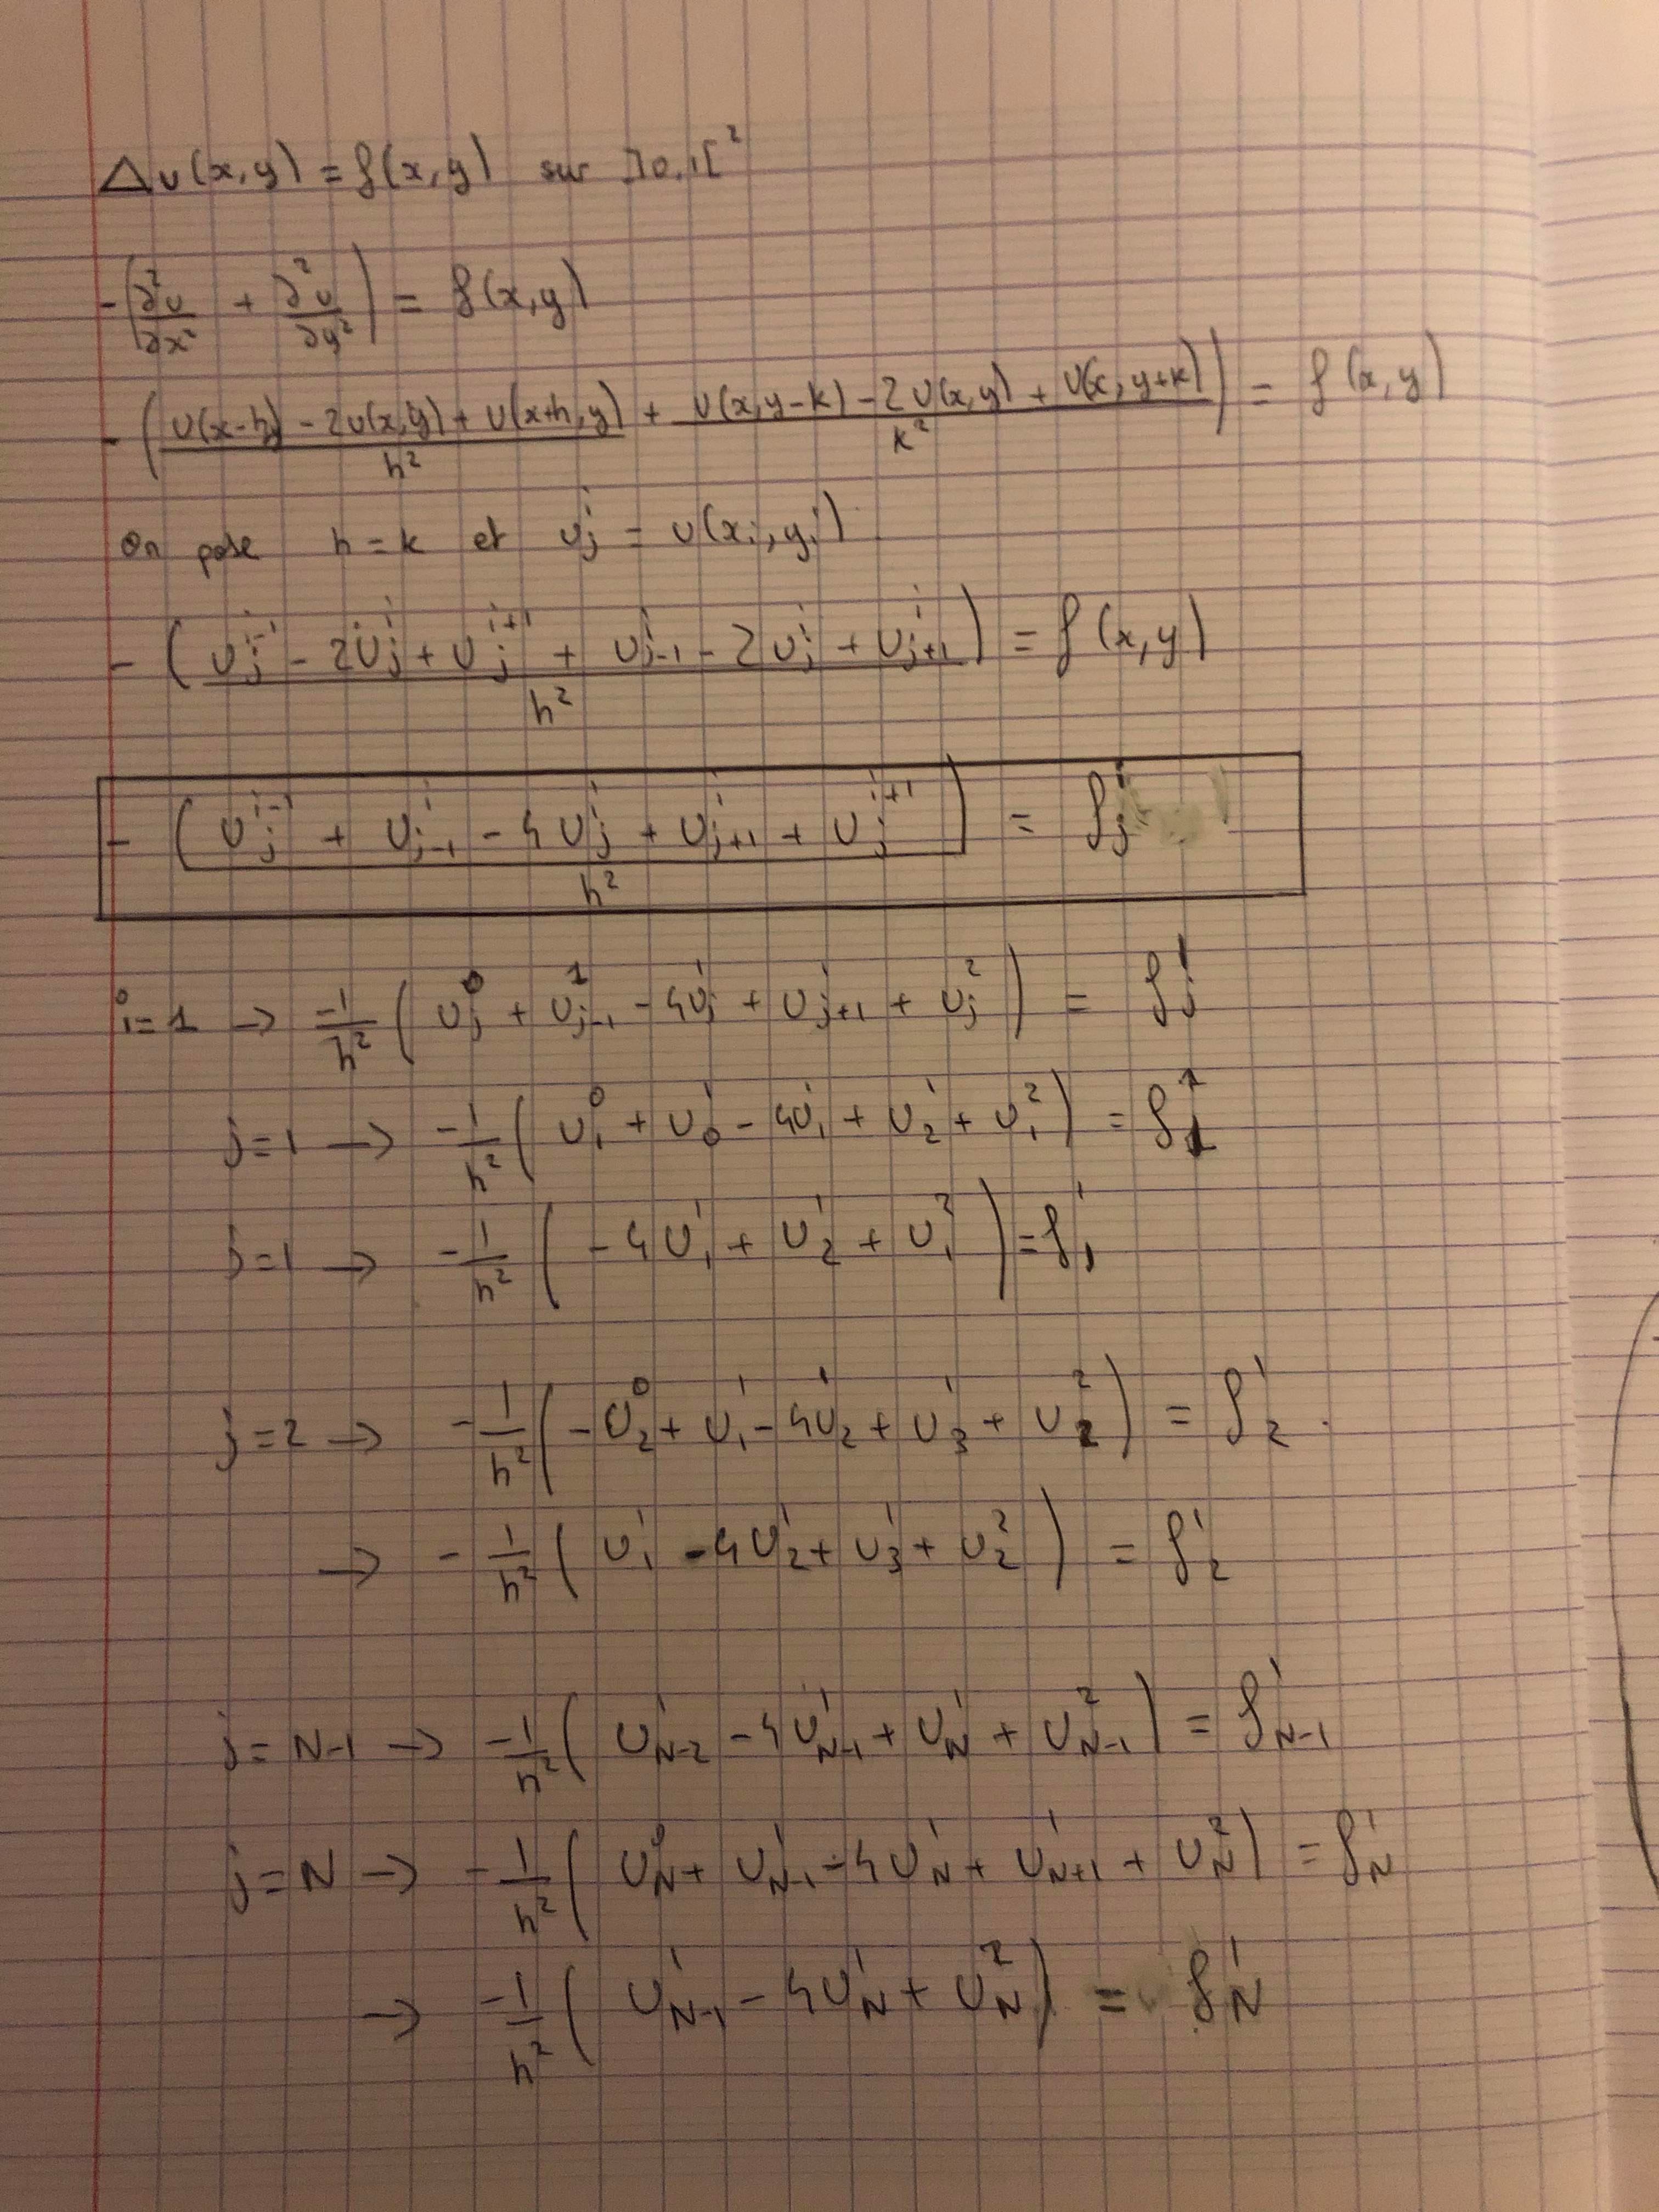 Δu(x,y) = f(x,y) sur ]0,1[²
-(∂²u/∂x² + ∂²u/∂y²) = f(x,y)
-((u(x-h,y) - 2u(x,y) + u(x+h,y))/h² + (u(x,y-k) - 2u(x,y) + u(x,y+k))/k²) = f(x,y)
On pose h = k et u_j^i = u(x_i, y_j)
-(u_j^{i-1} - 2u_j^i + u_j^{i+1} + u_{j-1}^i - 2u_j^i + u_{j+1}^i)/h² = f(x,y)
-(u_j^{i-1} + u_{j-1}^i - 4u_j^i + u_{j+1}^i + u_j^{i+1})/h² = f_j^i
i=1 → -1/h² (u_j^0 + u_{j-1}^1 - 4u_j^1 + u_{j+1}^1 + u_j^2) = f_j^1
j=1 → -1/h² (u_1^0 + u_0^1 - 4u_1^1 + u_2^1 + u_1^2) = f_1^1
j=1 → -1/h² (-4u_1^1 + u_2^1 + u_1^2) = f_1^1
j=2 → -1/h² (-u_2^0 + u_1^1 - 4u_2^1 + u_3^1 + u_2^2) = f_2^1.
→ -1/h² (u_1^1 - 4u_2^1 + u_3^1 + u_2^2) = f_2^1
j=N-1 → -1/h² (u_{N-2}^1 - 4u_{N-1}^1 + u_N^1 + u_{N-1}^2) = f_{N-1}^1
j=N → -1/h² (u_N^0 + u_{N-1}^1 - 4u_N^1 + u_{N+1}^1 + u_N^2) = f_N^1
→ -1/h² (u_{N-1}^1 - 4u_N^1 + u_N^2) = f_N^1